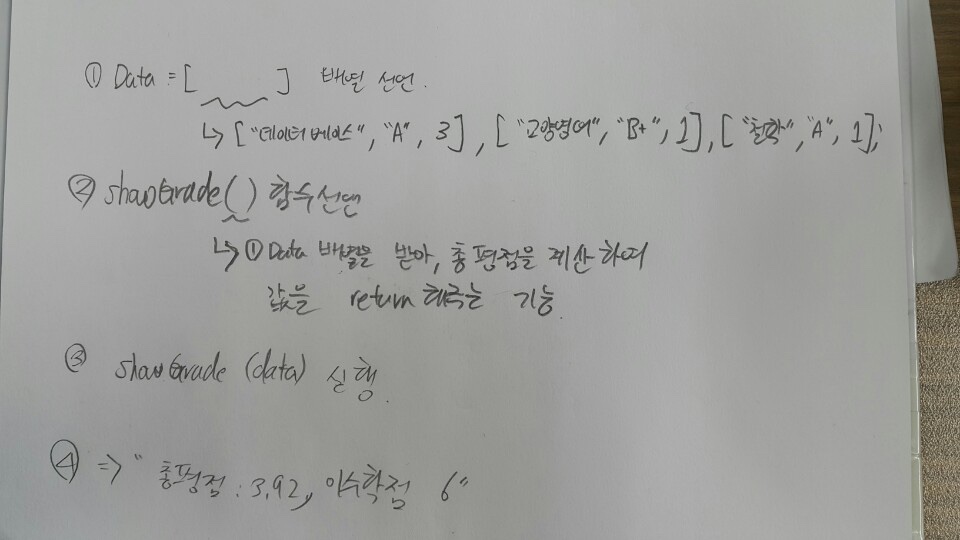 ① Data = [ ] 배열 선언.
↳ ["데이터베이스", "A", 3], ["교양영어", "B+", 1], ["철학", "A", 1];
② showGrade() 함수선언
↳ ① Data 배열을 받아, 총평점을 계산하여
값을 return 해주는 기능.
③ showGrade (data) 실행.
④ => "총평점 : 3.92, 이수학점 6"